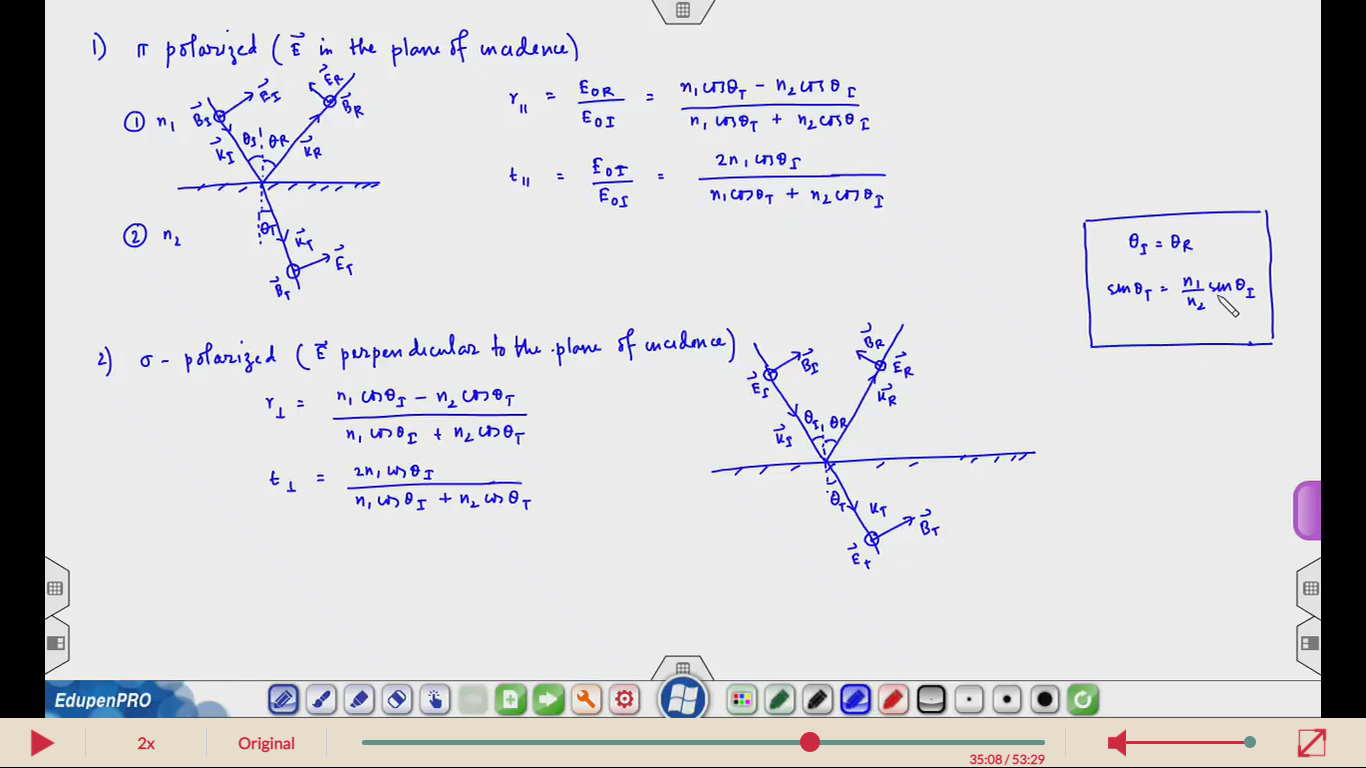 1) π polarized ( E⃗ in the plane of incidence)
① n₁
B⃗I E⃗I E⃗R B⃗R
K⃗I θI θR K⃗R
r∥ = E₀R / E₀I = (n₁ cosθT − n₂ cosθI) / (n₁ cosθT + n₂ cosθI)
t∥ = E₀I / E₀I = 2n₁ cosθI / (n₁ cosθT + n₂ cosθI)
② n₂
θT K⃗T E⃗T B⃗T
θI = θR
sinθT = n₁/n₂ sinθI
2) σ - polarized ( E⃗ perpendicular to the plane of incidence)
r⊥ = (n₁ cosθI − n₂ cosθT) / (n₁ cosθI + n₂ cosθT)
t⊥ = 2n₁ cosθI / (n₁ cosθI + n₂ cosθT)
E⃗I B⃗I B⃗R E⃗R
K⃗I θI θR K⃗R
θT KT B⃗T
E⃗t
EdupenPRO
2x
Original
35:08 / 53:29